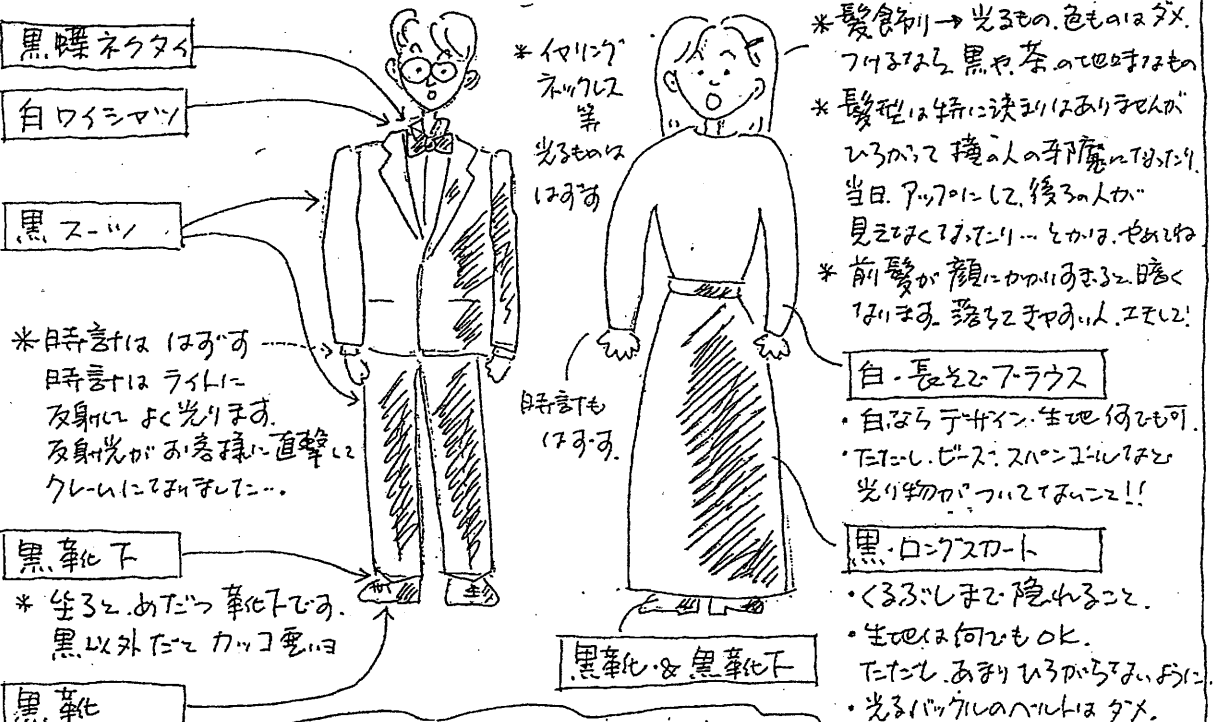 黒蝶ネクタイ
白ワイシャツ
黒スーツ
*時計は はずす
時計は ライトに
反射して よく光ります.
反射光が お客様に直撃して
クレームになりました….
黒靴下
*坐ると、めだつ靴下です.
黒以外だと カッコ悪いヨ
黒靴
*イヤリング
ネックレス
等
光るものは
はずす
時計も
はずす.
黒靴 & 黒靴下
*髪飾り→光るもの、色ものはダメ.
つけるなら、黒や、茶、の地味なもの
*髪型は特に決まりはありませんが
ひろがって 横の人の邪魔になったり、
当日、アップにして、後ろの人が
見えなくなったり… とかは、やめてね
*前髪が 顔にかかりすぎると、暗く
なります. 落ちてきやすい人、工夫して!
白・長そでブラウス
・白なら デザイン・生地 何でも可.
・ただし、ビーズ、スパンコールなど
光り物が ついてないこと!!
黒・ロングスカート
・くるぶしまで 隠れること.
・生地は何でも OK.
ただし、あまり ひろがらないように.
・光るバックルのベルトは ダメ.